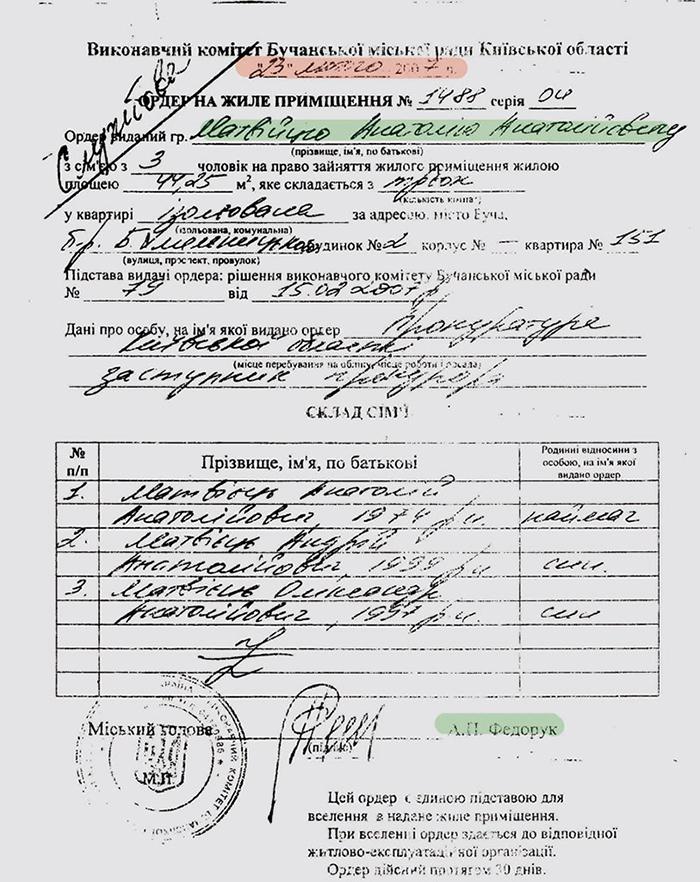 Виконавчий комітет Бучанської міської ради Київської області
"23" лютого 2007 р.
Службове
ОРДЕР НА ЖИЛЕ ПРИМІЩЕННЯ № 1488 серія 04
Ордер виданий гр. Матвійцю Анатолію Анатолійовичу
(прізвище, ім'я, по батькові)
з сім'єю з 3 чоловік на право зайняття жилого приміщення жилою
площею 44,25 м², яке складається з трьох
(кількість кімнат)
у квартирі ізольована за адресою: місто Буча,
(ізольована, комунальна)
Б-р. Б. Хмельницького будинок № 2 корпус № — квартира № 151
(вулиця, проспект, провулок)
Підстава видачі ордера: рішення виконавчого комітету Бучанської міської ради
№ 79 від 15.02.2007 р.
Дані про особу, на ім'я якої видано ордер Прокуратура
Київської області
(місце перебування на обліку, місце роботи і посада)
заступник прокурора
СКЛАД СІМ'Ї
№ п/п Прізвище, ім'я, по батькові Родинні відносини з особою, на ім'я якої видано ордер
1. Матвієць Анатолій
Анатолійович, 1974 р.н. наймач
2. Матвієць Андрій
Анатолійович, 1999 р.н. син
3. Матвієць Олександр
Анатолійович, 1997 р.н. син
Міський голова А.П. Федорук
(підпис)
М.П.
Цей ордер є єдиною підставою для
вселення в надане жиле приміщення.
При вселенні ордер здається до відповідної
житлово-експлуатаційної організації.
Ордер дійсний протягом 30 днів.